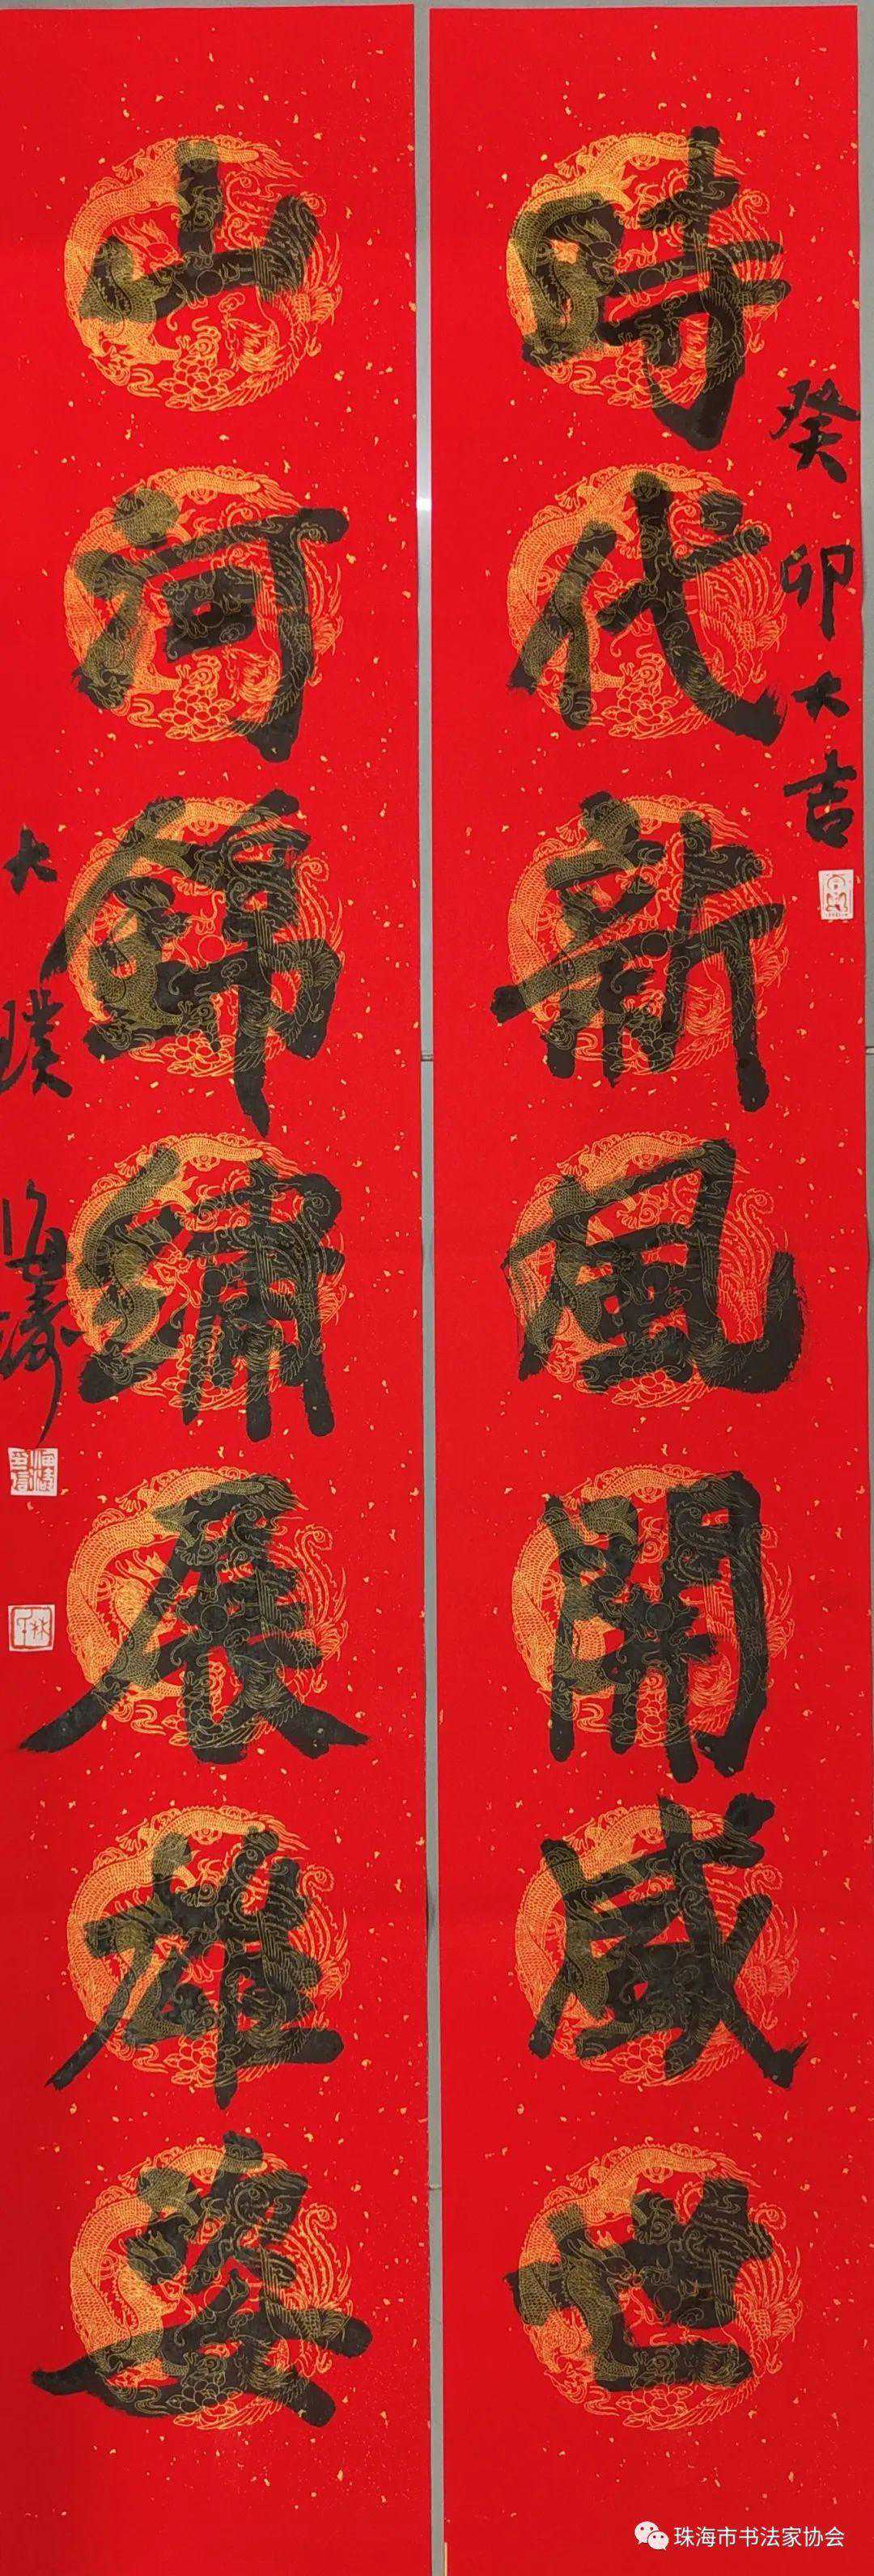 癸卯大吉
時代新風開盛世
山河錦繡展雄姿
大璞 海濤
海濤印信
珠海市书法家协会